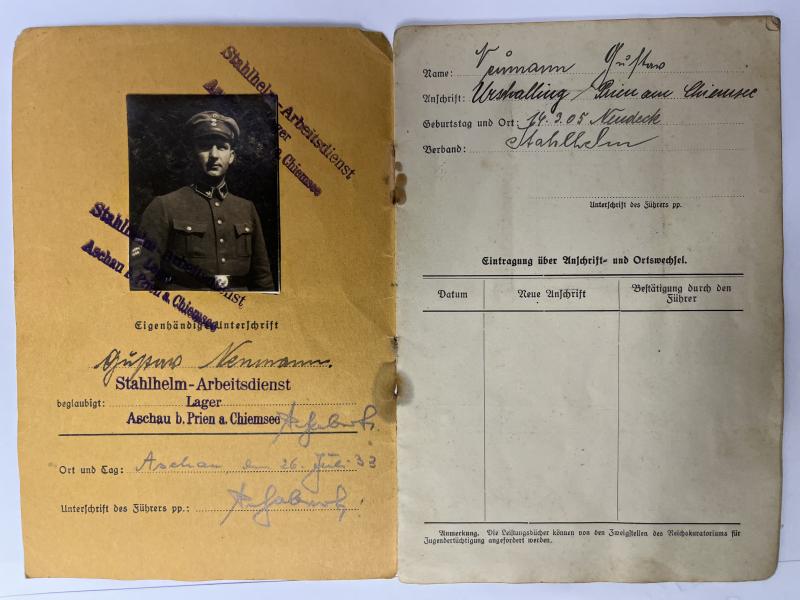 Stahlhelm-Arbeitsdienst
Lager
Aschau b. Prien a. Chiemsee
Stahlhelm-Arbeitsdienst
Lager
Aschau b. Prien a. Chiemsee
Eigenhändige Unterschrift
Gustav Neumann.
Stahlhelm-Arbeitsdienst
beglaubigt: Lager
Aschau b. Prien a. Chiemsee
Ort und Tag: Aschau, den 26. Juli 33
Unterschrift des Führers pp.:
Name: Neumann Gustav
Anschrift: Urschalling / Prien am Chiemsee
Geburtstag und Ort: 14.9.05 Neudeck
Verband: Stahlhelm
Unterschrift des Führers pp.
Eintragung über Anschrift- und Ortswechsel.
Datum Neue Anschrift Bestätigung durch den Führer
Anmerkung. Die Leistungsbücher können von den Zweigstellen des Reichskuratoriums für
Jugendertüchtigung angefordert werden.